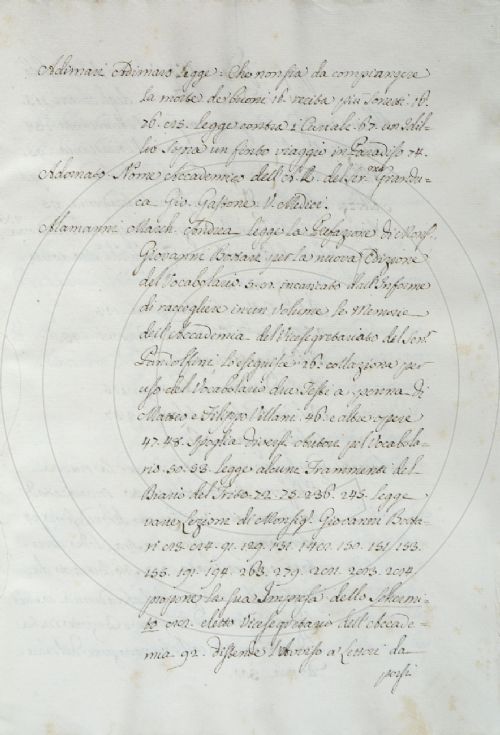 Adimari Adimaro legge. Che non sia da compiangere
la morte dei buoni 16. recita più Sonetti 16.
76. legge contra i Canali. 67. un Idil-
lio sopra un finto viaggio in Paradiso 74.
Adornato. Nome Accademico dell' del Ser. Grandu-
ca Gio. Gastone V. Medici.
Alamanni March. Andrea legge la Prefazione di Mons.
Giovanni Bottari per la nuova Edizione
del Vocabolario. incaricato dall' Informe
di raccogliere in un volume le Memorie
dell' Accademia del Vicesegretariato del Sen.
Pandolfini lo eseguisce 26. collaziona per
uso del Vocabolario due Testi a penna di
Matteo e Filippo Villani 46. e altre opere
47. 48. spoglia diversi Autori pel Vocabola-
rio. 50. 53. legge alcuni Frammenti del
Diario del Trito 72. 75. 236. 245. legge
varie Lezioni di Monsig. Giovanni Botta-
ri 91. 129. 131. 140. 150. 151. 153.
155. 191. 194. 263. 279.
propone la sua Impresa dello Schermi-
to eletto Vicesegretario dell' Accade-
mia 92. distende l' Avviso a Lettori da
porsi